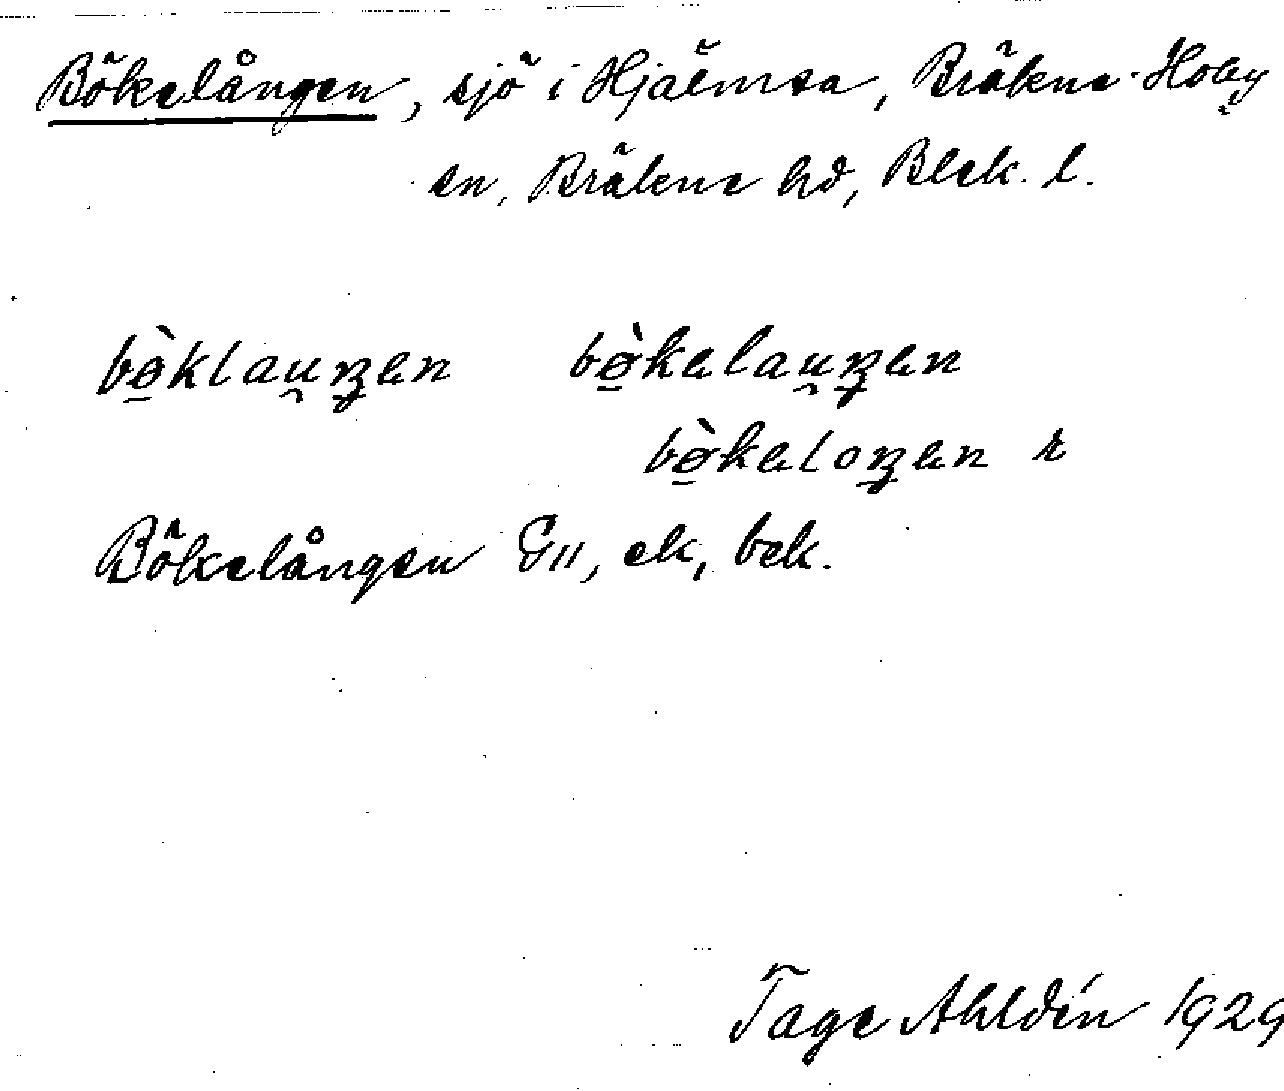 Bökelången, sjö i Hjälmsa, Bräkne-Hoby
sn, Bräkne hd, Blek. l.
bø̀klau̯ŋen bø̀kelau̯ŋen
bø̀keloŋen r
Bökelången GII, ek, bek.
Tage Ahldén 1929